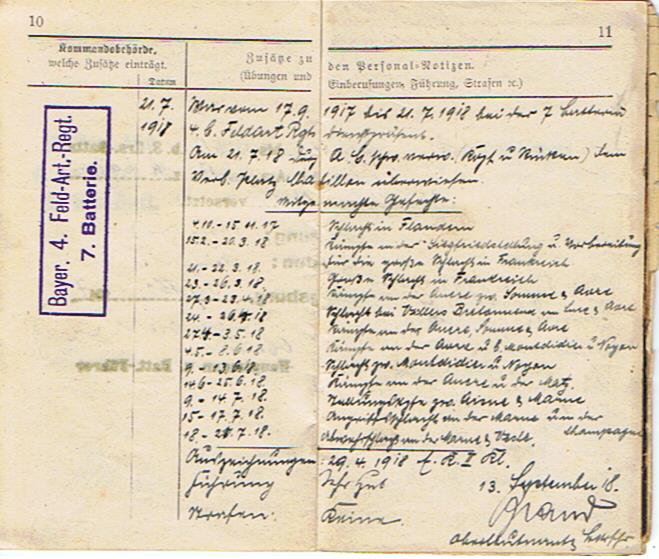 10
11
Kommandobehörde,
welche Zusätze einträgt.
Datum
Zusätze zu den Personal-Notizen.
(Übungen und Einberufungen, Führung, Strafen ꝛc.)
Bayer. 4. Feld-Art.-Regt.
7. Batterie.
21.7. War vom 17.9. 1917 bis 21.7.1918 bei der 7. Batterie
1918 4. b. Feldart. Rgts
Am 21.7.18 A. G. verw. (Kopf u Rücken) dem
überwiesen.
Mitgemachte Gefechte:
4.10.-15.11.17 Schlacht in Flandern
15.2.-20.3.18 Kämpfe in der Siegfriedstellung u Vorbereitung
für die große Schlacht in Frankreich
21.-22.3.18 Große Schlacht in Frankreich
23.-26.3.18
27.3-23.4.18 Kämpfe an der Ancre zw. Somme & Avre
24.-26.4.18 Schlacht bei Villers Bretonneux an Luce & Avre
27.4-3.5.18 Kämpfe an der Ancre, Somme & Avre
4.5.-8.6.18 Kämpfe an der Avre u b. Montdidier u Noyon
9.-13.6.18 Schlacht zw. Montdidier u Noyon
14.6-25.6.18 Kämpfe an der Avre u der Matz.
9.-14.7.18 Stellungskpfe zw. Aisne & Marne
15.-17.7.18 Angriffsschlacht an der Marne u in der
Champagne
18.-21.7.18. Abwehrschlacht an der Marne & Vesle.
Auszeichnungen: 29.4.1918 E. K. II Kl.
Führung Sehr Gut 13. September 18.
Strafen: Keine. Brand
Oberleutnant &